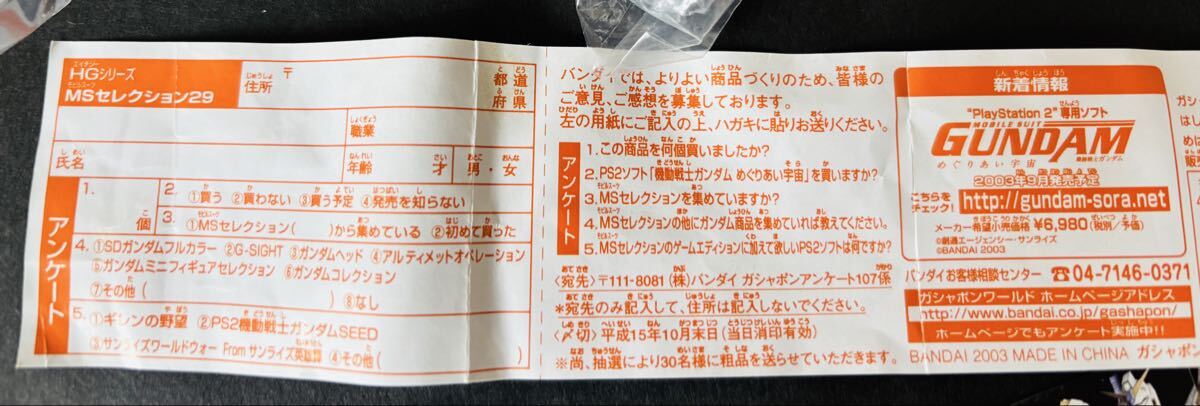 HGシリーズ
MSセレクション29
住所
〒
都道
府県
職業
氏名
年齢
才
男・女
アンケート
1.
個
2.
①買う ②買わない ③買う予定 ④発売を知らない
3.
①MSセレクション( )から集めている ②初めて買った
4. ①SDガンダムフルカラー ②G-SIGHT ③ガンダムヘッド ④アルティメットオペレーション
⑤ガンダムミニフィギュアセレクション ⑥ガンダムコレクション
⑦その他( ) ⑧なし
5. ①ギレンの野望 ②PS2機動戦士ガンダムSEED
③サンライズワールドウォー Fromサンライズ英雄譚 ④その他(
バンダイでは、よりよい商品づくりのため、皆様の
ご意見、ご感想を募集しております。
左の用紙にご記入の上、ハガキに貼りお送りください。
アンケート
1. この商品を何個買いましたか?
2. PS2ソフト「機動戦士ガンダム めぐりあい宇宙」を買いますか?
3. MSセレクションを集めていますか?
4. MSセレクションの他にガンダム商品を集めていれば教えてください。
5. MSセレクションのゲームエディションに加えて欲しいPS2ソフトは何ですか?
〈宛先〉〒111-8081 (株)バンダイ ガシャポンアンケート107係
*宛先のみ記入して、住所は記入しないでください。
〈〆切〉平成15年10月末日(当日消印有効)
※尚、抽選により30名様に粗品を送らせていただきます。
新着情報
"PlayStation 2"専用ソフト
MOBILE SUIT
GUNDAM
機動戦士ガンダム
めぐりあい宇宙
2003年9月発売予定
こちらを
チェック!
http://gundam-sora.net
メーカー希望小売価格 ¥6,980(税別/予価)
©創通エージェンシー・サンライズ
©BANDAI 2003
バンダイお客様相談センター ☎04-7146-0371
ガシャポンワールド ホームページアドレス
http://www.bandai.co.jp/gashapon/
ホームページでもアンケート実施中!!
BANDAI 2003 MADE IN CHINA ガシャポン